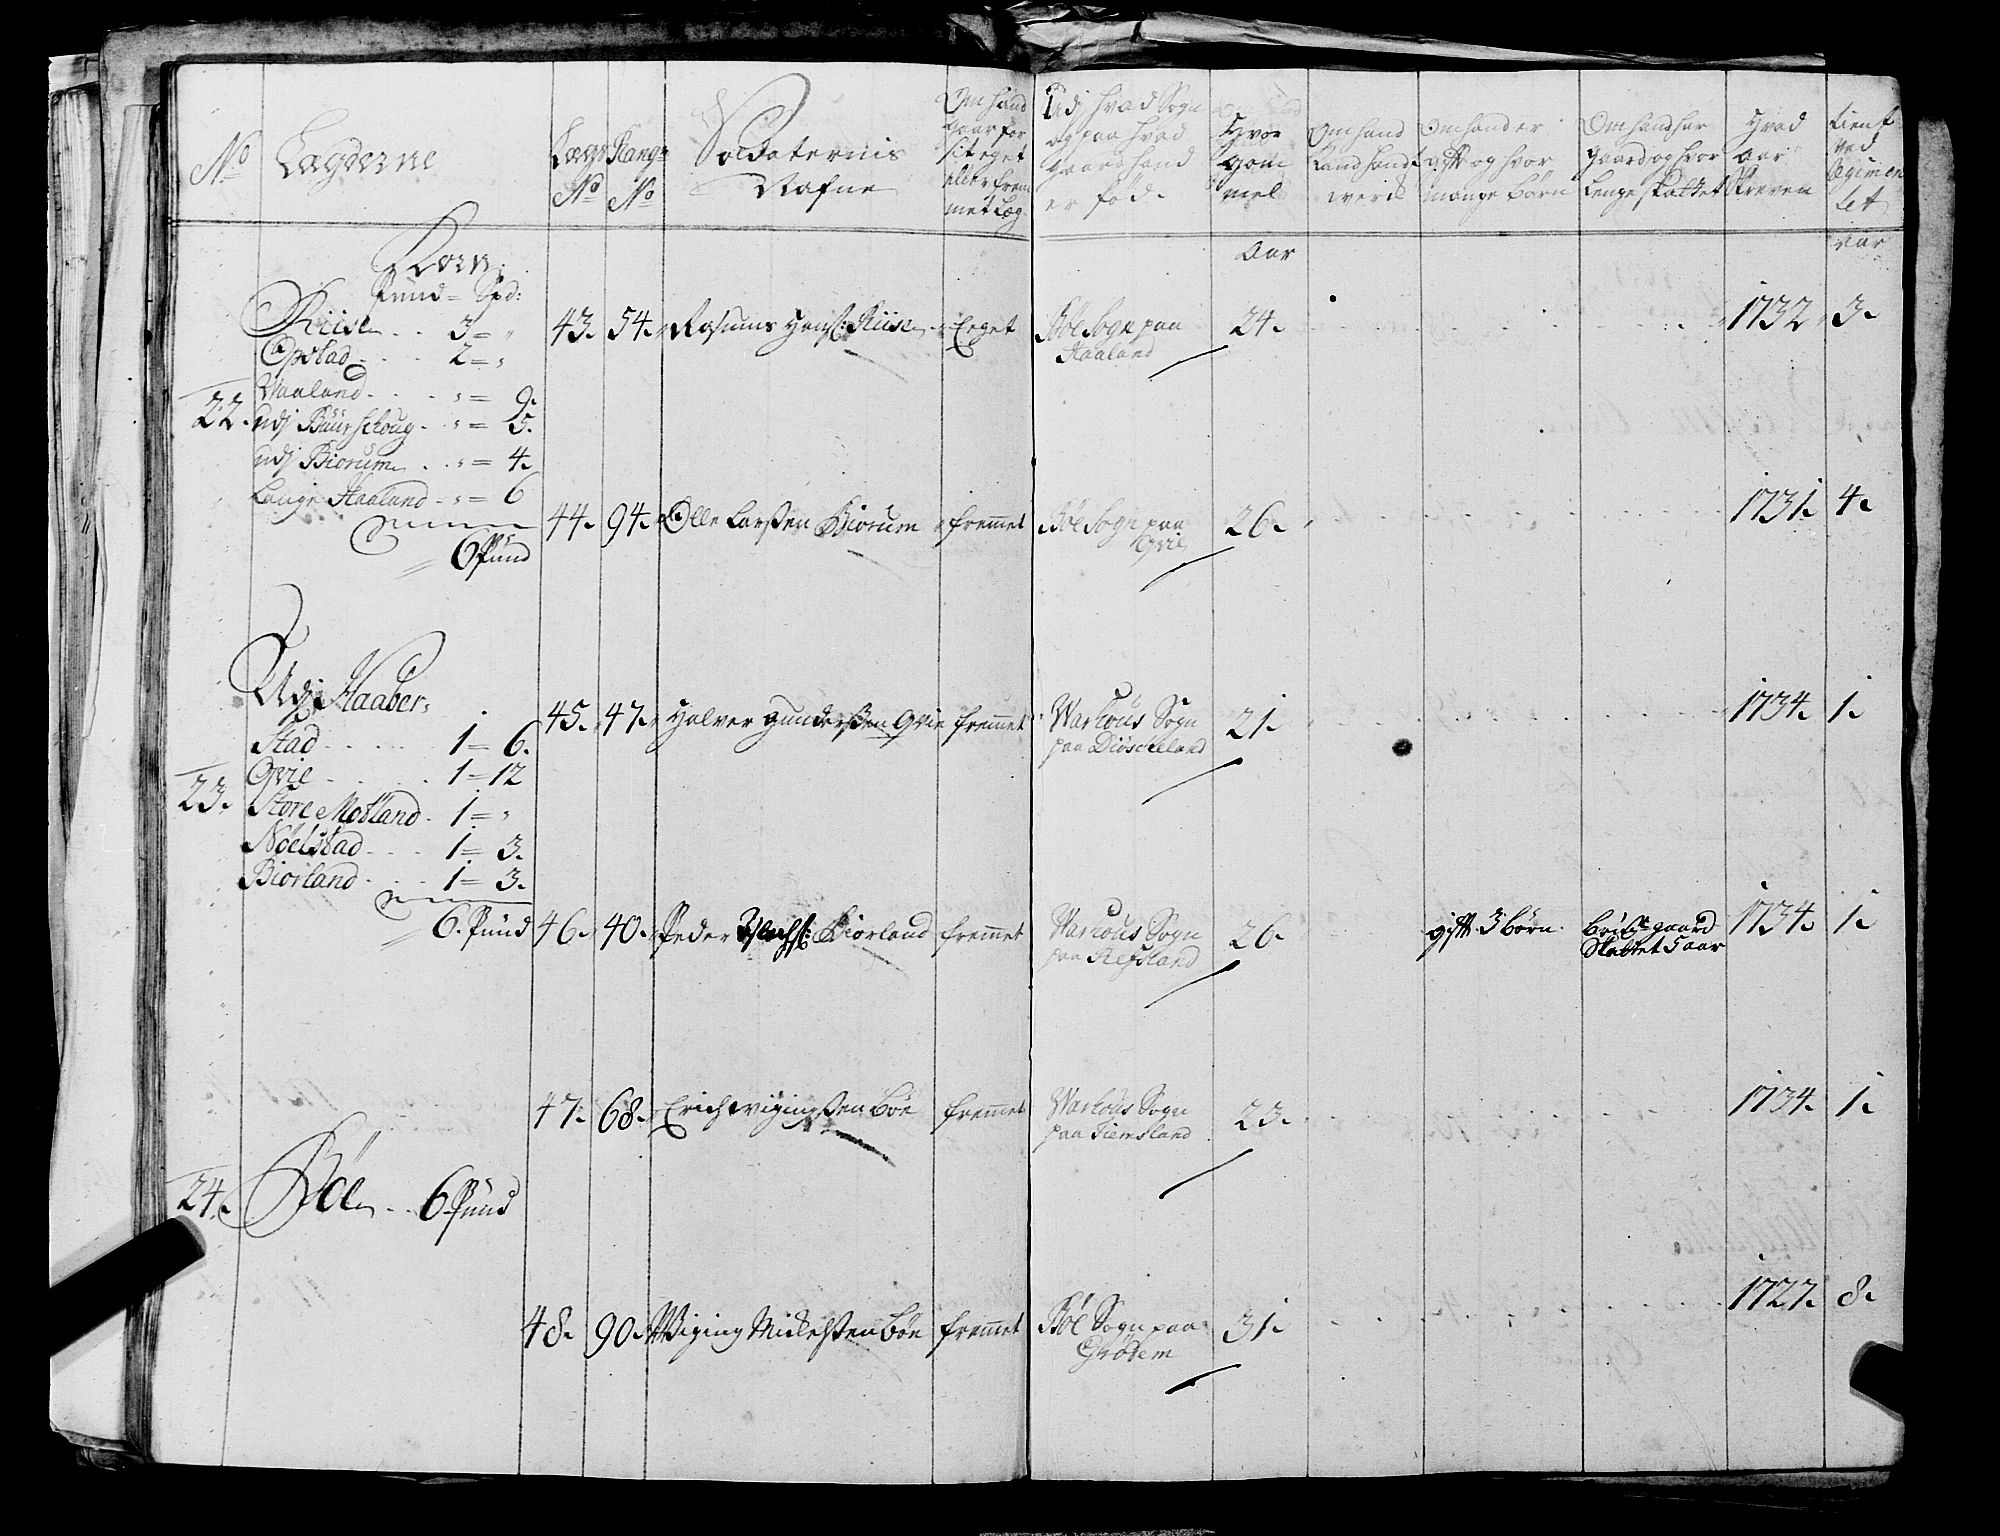 No
Lægderne
Lægd No
Rang No
Soldaternis Nafne
Om hand gaar for sit eget eller fremmet Læg
Udj hvad Sogn og paa hvad Gaard hand er fød.
Hvor gammel
Om hand kand handtwerk
Om hand er gift og hvor mange børn
Om hand har Gaard og hvor lenge skattet
Hvad aar skreven
tient ved Regimentet
Aar
aar
Korn
Pund = Spd:
Riise . . 3 = "
Opstad . . . . 2 = "
Vaaland . . . . " = 9.
22. udj Büürschoug . " = 5.
udj Biorum . . " = 4.
Lange Haaland . " = 6
6 Pund
43. 54. Rasmus Hansß: Riise Eeget Böe Sogn paa Haaland 24. 1732 3.
44. 94. Olle Larßen Biorum fremmet Böe Sogn paa Qvie 26. 1731. 4.
Udj Haaber,
Stad . . . . . 1 = 6.
Qvie . . . . . 1 = 12
23. Store Motland . 1 = "
Nöelstad . . . 1 = 3.
Biorland . . . . 1 = 3.
6. Pund
45. 47. Halver Gunderßen Qvie fremmet Warhous Sogn paa Diöscheland 21. 1734. 1.
46. 40. Peder Biorland fremmet Warhous Sogn paa Refsland 26. gift 3 börn. gaard Skattet 5 aar 1734. 1.
47. 68. Erich Wigingßen Böe fremmet Warhous Sogn paa Tiemsland 23. 1734. 1.
24. Böe . . 6 Pund
48. 90. Wiging Mickelßen Böe fremmet Böe Sogn paa Grödem 31. 1727. 8.